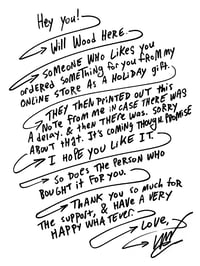 Hey you!
Will Wood Here.
Someone who likes you
ordered something for you from my
online store as a holiday gift.
They then printed out this
note from me in case there was
a delay. & then there was. Sorry
about that. It's coming though, promise
I hope you like it.
So does the person who
bought it for you.
Thank you so much for
the support, & have a very
happy whatever.
Love,